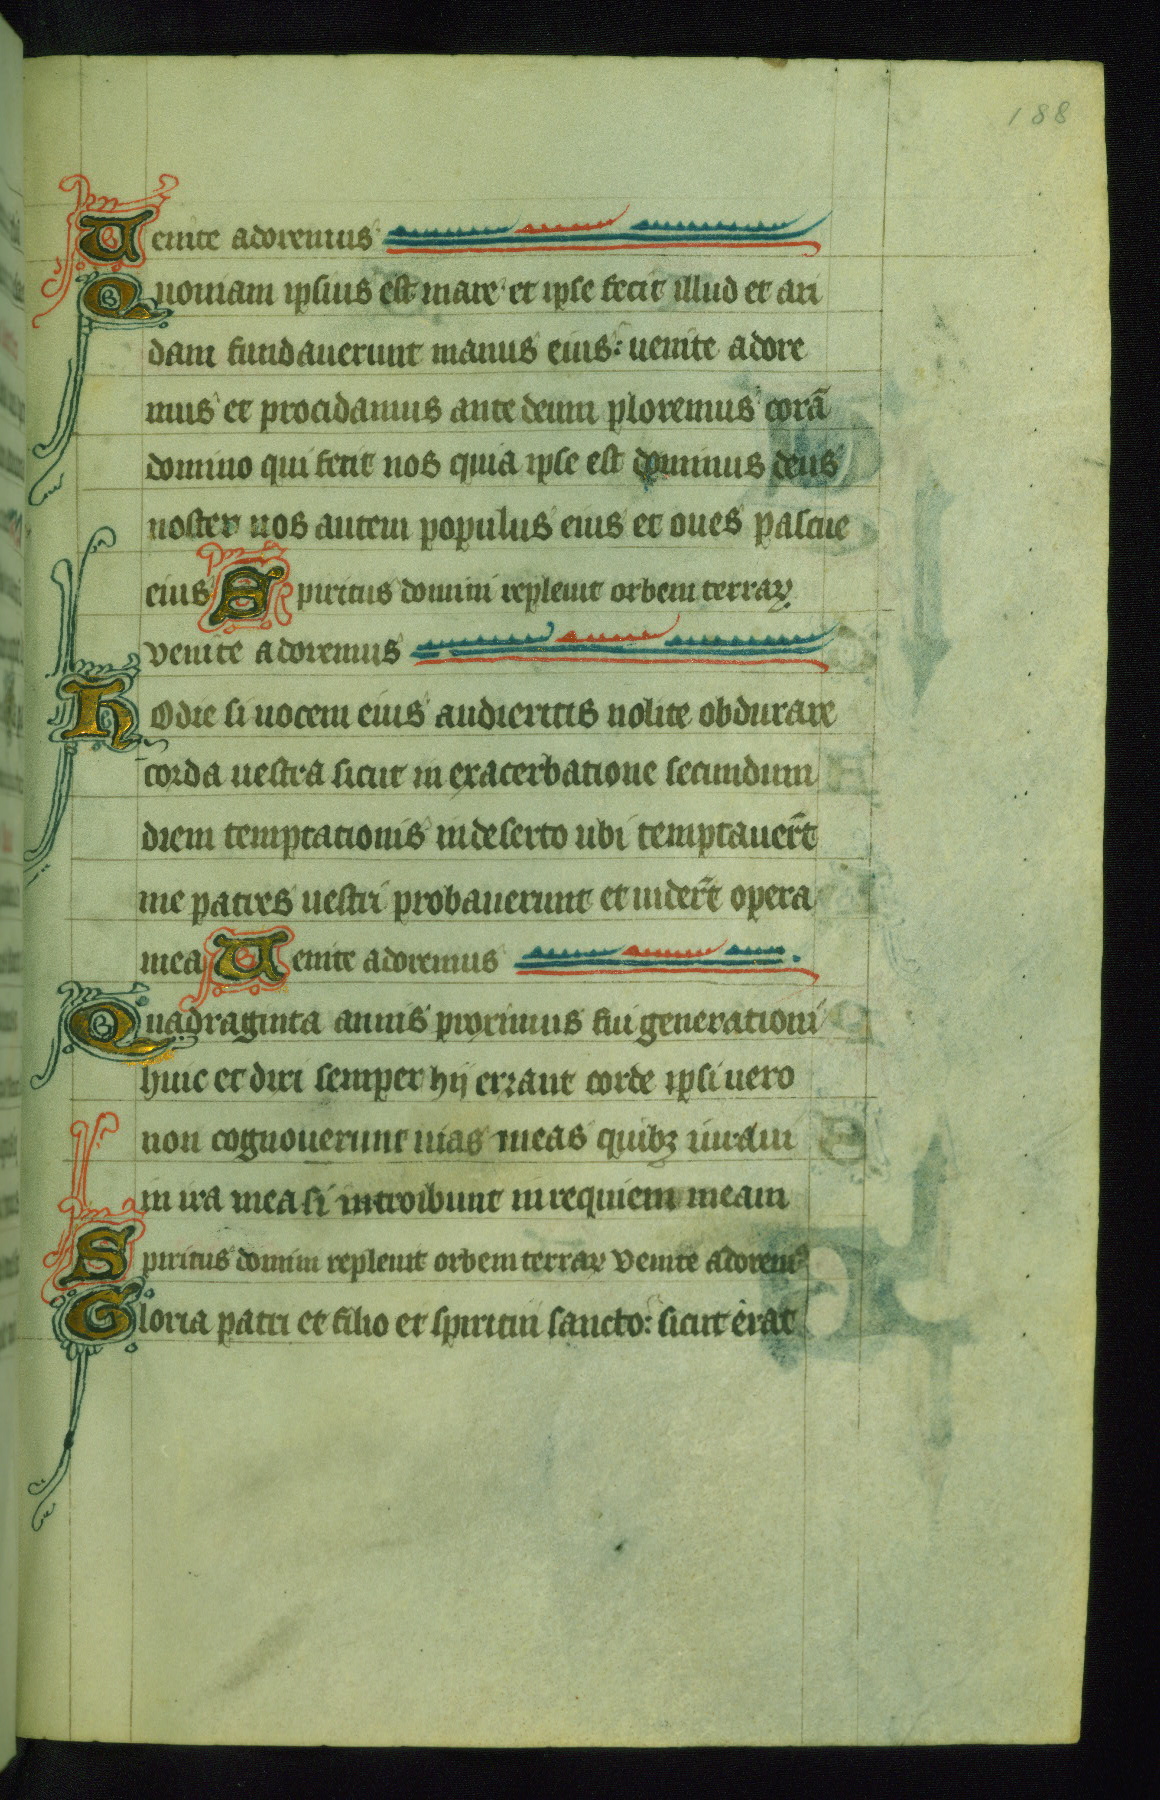 188
Uenite adoremus
Quoniam ipsius est mare et ipse fecit illud et ari
dam fundauerunt manus eius: uenite adore
mus et procidamus ante deum ploremus corā
domino qui fecit nos quia ipse est dominus deus
noster nos autem populus eius et oues pascue
eius Spiritus domini repleuit orbem terraꝝ
venite adoremus
hodie si uocem eius audieritis nolite obdurare
corda uestra sicut in exacerbatione secundum
diem temptationis in deserto ubi temptauer̄t
me patres uestri probauerunt et uider̄t opera
mea Uenite adoremus
Quadraginta annis proximus fui generationi
huic et dixi semper hij errant corde ipsi uero
non cognouerunt uias meas quibꝫ iuraui
in ira mea si introibunt in requiem meam
Spiritus domini repleuit orbem terraꝝ Venite adoremꝰ
Gloria patri et filio et spiritui sancto: sicut erat